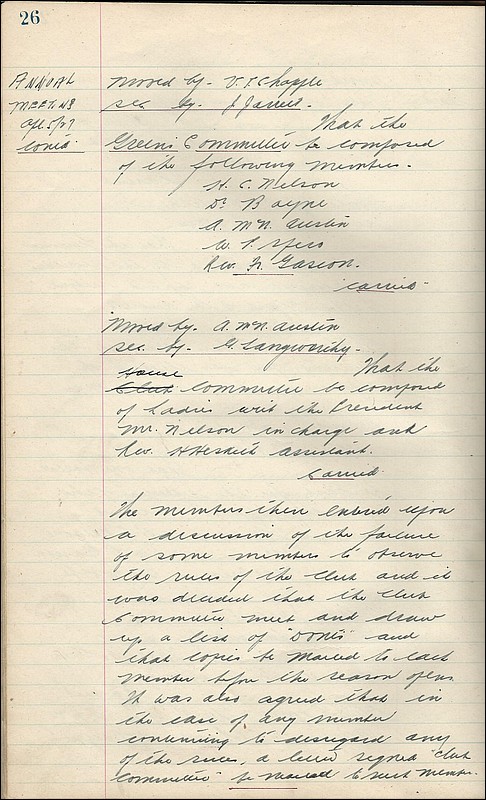 26
ANNUAL
MEETING
Apl. 5/27
Contd.
Moved by - V. T. Chapple
sec. by. J. Jarrell.
That the
Greens Committee be composed
of the following members.
H. C. Nelson
Dr. Bayne
A. McN. Austin
W. P.
Rev. Fr. Gascon.
Carried.
Moved by. A. McN. Austin
sec. by. G. Langworthy.
That the
House
Club Committee be composed
of Ladies with the President
Mr. Nelson in charge and
Rev. H Heskett assistant.
Carried.
The members then entered upon
a discussion of the failure
of some members to observe
the rules of the club and it
was decided that the Club
Committee meet and draw
up a list of "Donts" and
that copies be mailed to each
member before the season opens.
It was also agreed that in
the case of any member
continuing to disregard any
of the rules, a letter signed "Club
Committee" be mailed to such member.